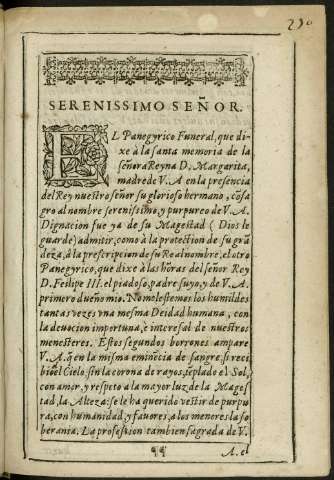 230
SERENISSIMO SEÑOR.
EL Panegyrico Funeral, que di-
xe à la santa memoria de la
señora Reyna D. Margarita,
madre de V. A en la presencia
del Rey nuestro señor su glorioso hermano, cosa
gro al nombre serenissimo, y purpureo de V. A.
Dignacion fue ya de su Magestad ( Dios le
guarde) admitir, como à la protection de su grã
deza, à la prescripcion de su Real nombre, el otro
Panegyrico, que dixe à las hõras del señor Rey
D. Felipe III. el piadoso, padre suyo, y de V. A
primero dueño mio. No molestemos los humildes
tantas vezes vna mesma Deidad humana, con
la deuocion importuna, è interesal de nuestros
menesteres. Estos segundos borrones ampare
V. A. q̃ en la misma eminẽcia de sangre, s
el Cielo sin la corona de rayos, tẽplado el Sol,
con amor, y respeto a la mayor luz de la Mages
tad, la Alteza: se le ha querido vestir de purpu
ra, con humanidad, y fauores, a los menores la so
berania. La profession tambien sagrada de V.
¶¶ A. el